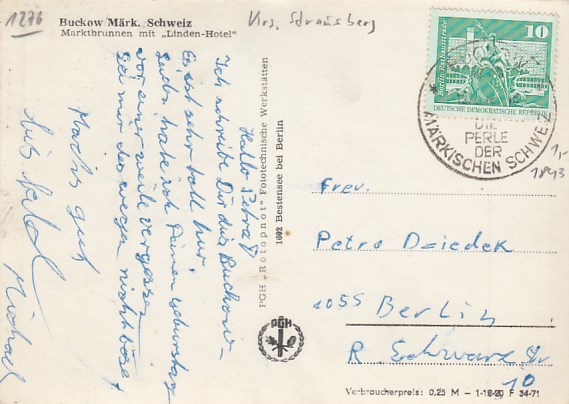 1276
Buckow/Märk. Schweiz
Marktbrunnen mit „Linden-Hotel"
Krs. Strausberg
Hallo Petra!
Ich schreibe Dir aus Buckow.
Es ist sehr toll hier.
Leider habe ich Deinen Geburtstag
vor einer Weile vergessen.
Sei mir deswegen nicht böse,
Machs gut
bis bald
Michael
PGH „Rotophot" Fototechnische Werkstätten
1602 Bestensee bei Berlin
PGH
10
Berlin, Rathausstraße
DEUTSCHE DEMOKRATISCHE REPUBLIK
DIE
PERLE
DER
MÄRKISCHEN SCHWEIZ
1,-
1843
Petra
1055 Berlin
R. Schwarz Str
10
Verbraucherpreis: 0,25 M – F 34-71